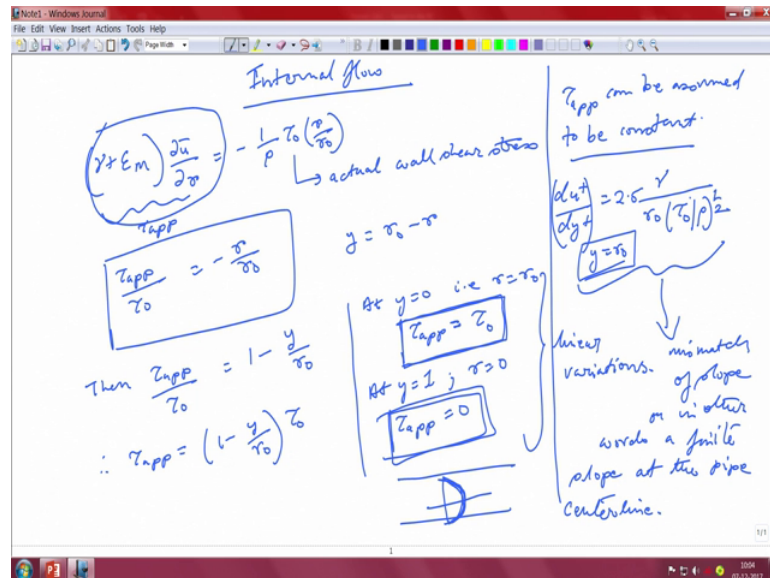 Note1 - Windows Journal
File Edit View Insert Actions Tools Help
Page Width
B I
Internal flow
(γ + εm) ∂ū/∂r = - 1/ρ τ0 (r/r0)
τapp
↳ actual wall shear stress
τapp/τ0 = - r/r0
y = r0 - r
Then τapp/τ0 = 1 - y/r0
∴ τapp = (1 - y/r0) τ0
At y=0 i.e r=r0
τapp = τ0
At y=1 ; r=0
τapp = 0
linear
variations.
τapp can be assumed
to be constant.
(du+/dy+) y=r0 = 2.5 γ / r0 (τ0/ρ)^1/2
mismatch
of slope
or in other
words a finite
slope at the pipe
centerline.
1/1
1
10:04
07-12-2017